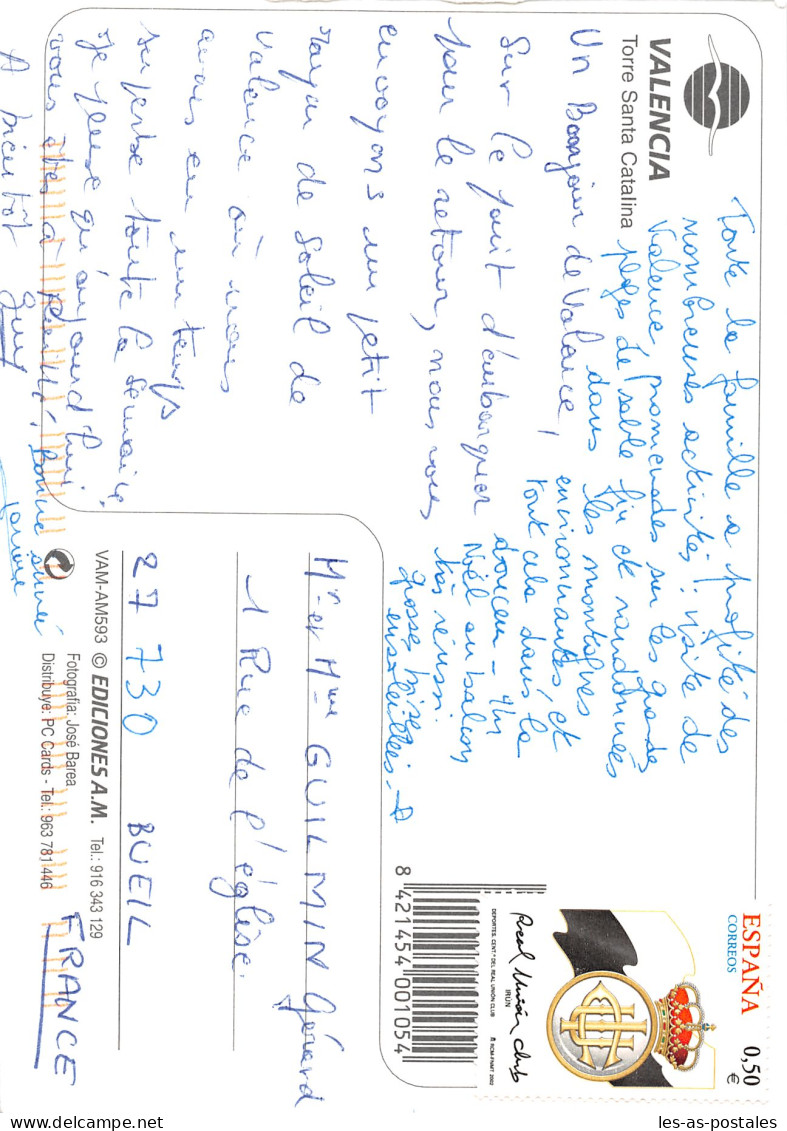 VALENCIA
Torre Santa Catalina
Un Bonjour de Valence,
Sur le point d'embarquer
pour le retour, nous vous
envoyons un petit
rayon de soleil de
Valence où nous
avons eu un temps
superbe toute la semaine.
Je pense qu'aujourd'hui
vous êtes à
A bientôt
Guy
bonne année
Toute la famille a profité des
nombreuses activités : visite de
Valence, promenades sur les grandes
plages de sable fin et randonnées
dans les montagnes
environnantes, et
tout cela dans la
douceur - Un
Noël au balcon
très réussi.
Grosses bises
ensoleillées - A
Mr et Mme GUILMIN Gérard
1 Rue de l'église.
27 730 BUEIL
FRANCE
VAM-AM593 © EDICIONES A.M. Tel.: 916 343 129
Fotografía: José Barea
Distribuye: PC Cards - Tel.: 963 781 446
8 421454 001054
ESPAÑA 0,50 €
CORREOS
Real Unión Club
IRÚN
DEPORTES. CENT.º DEL REAL UNIÓN CLUB
RCM-FNMT 2002
les-as-postales.com